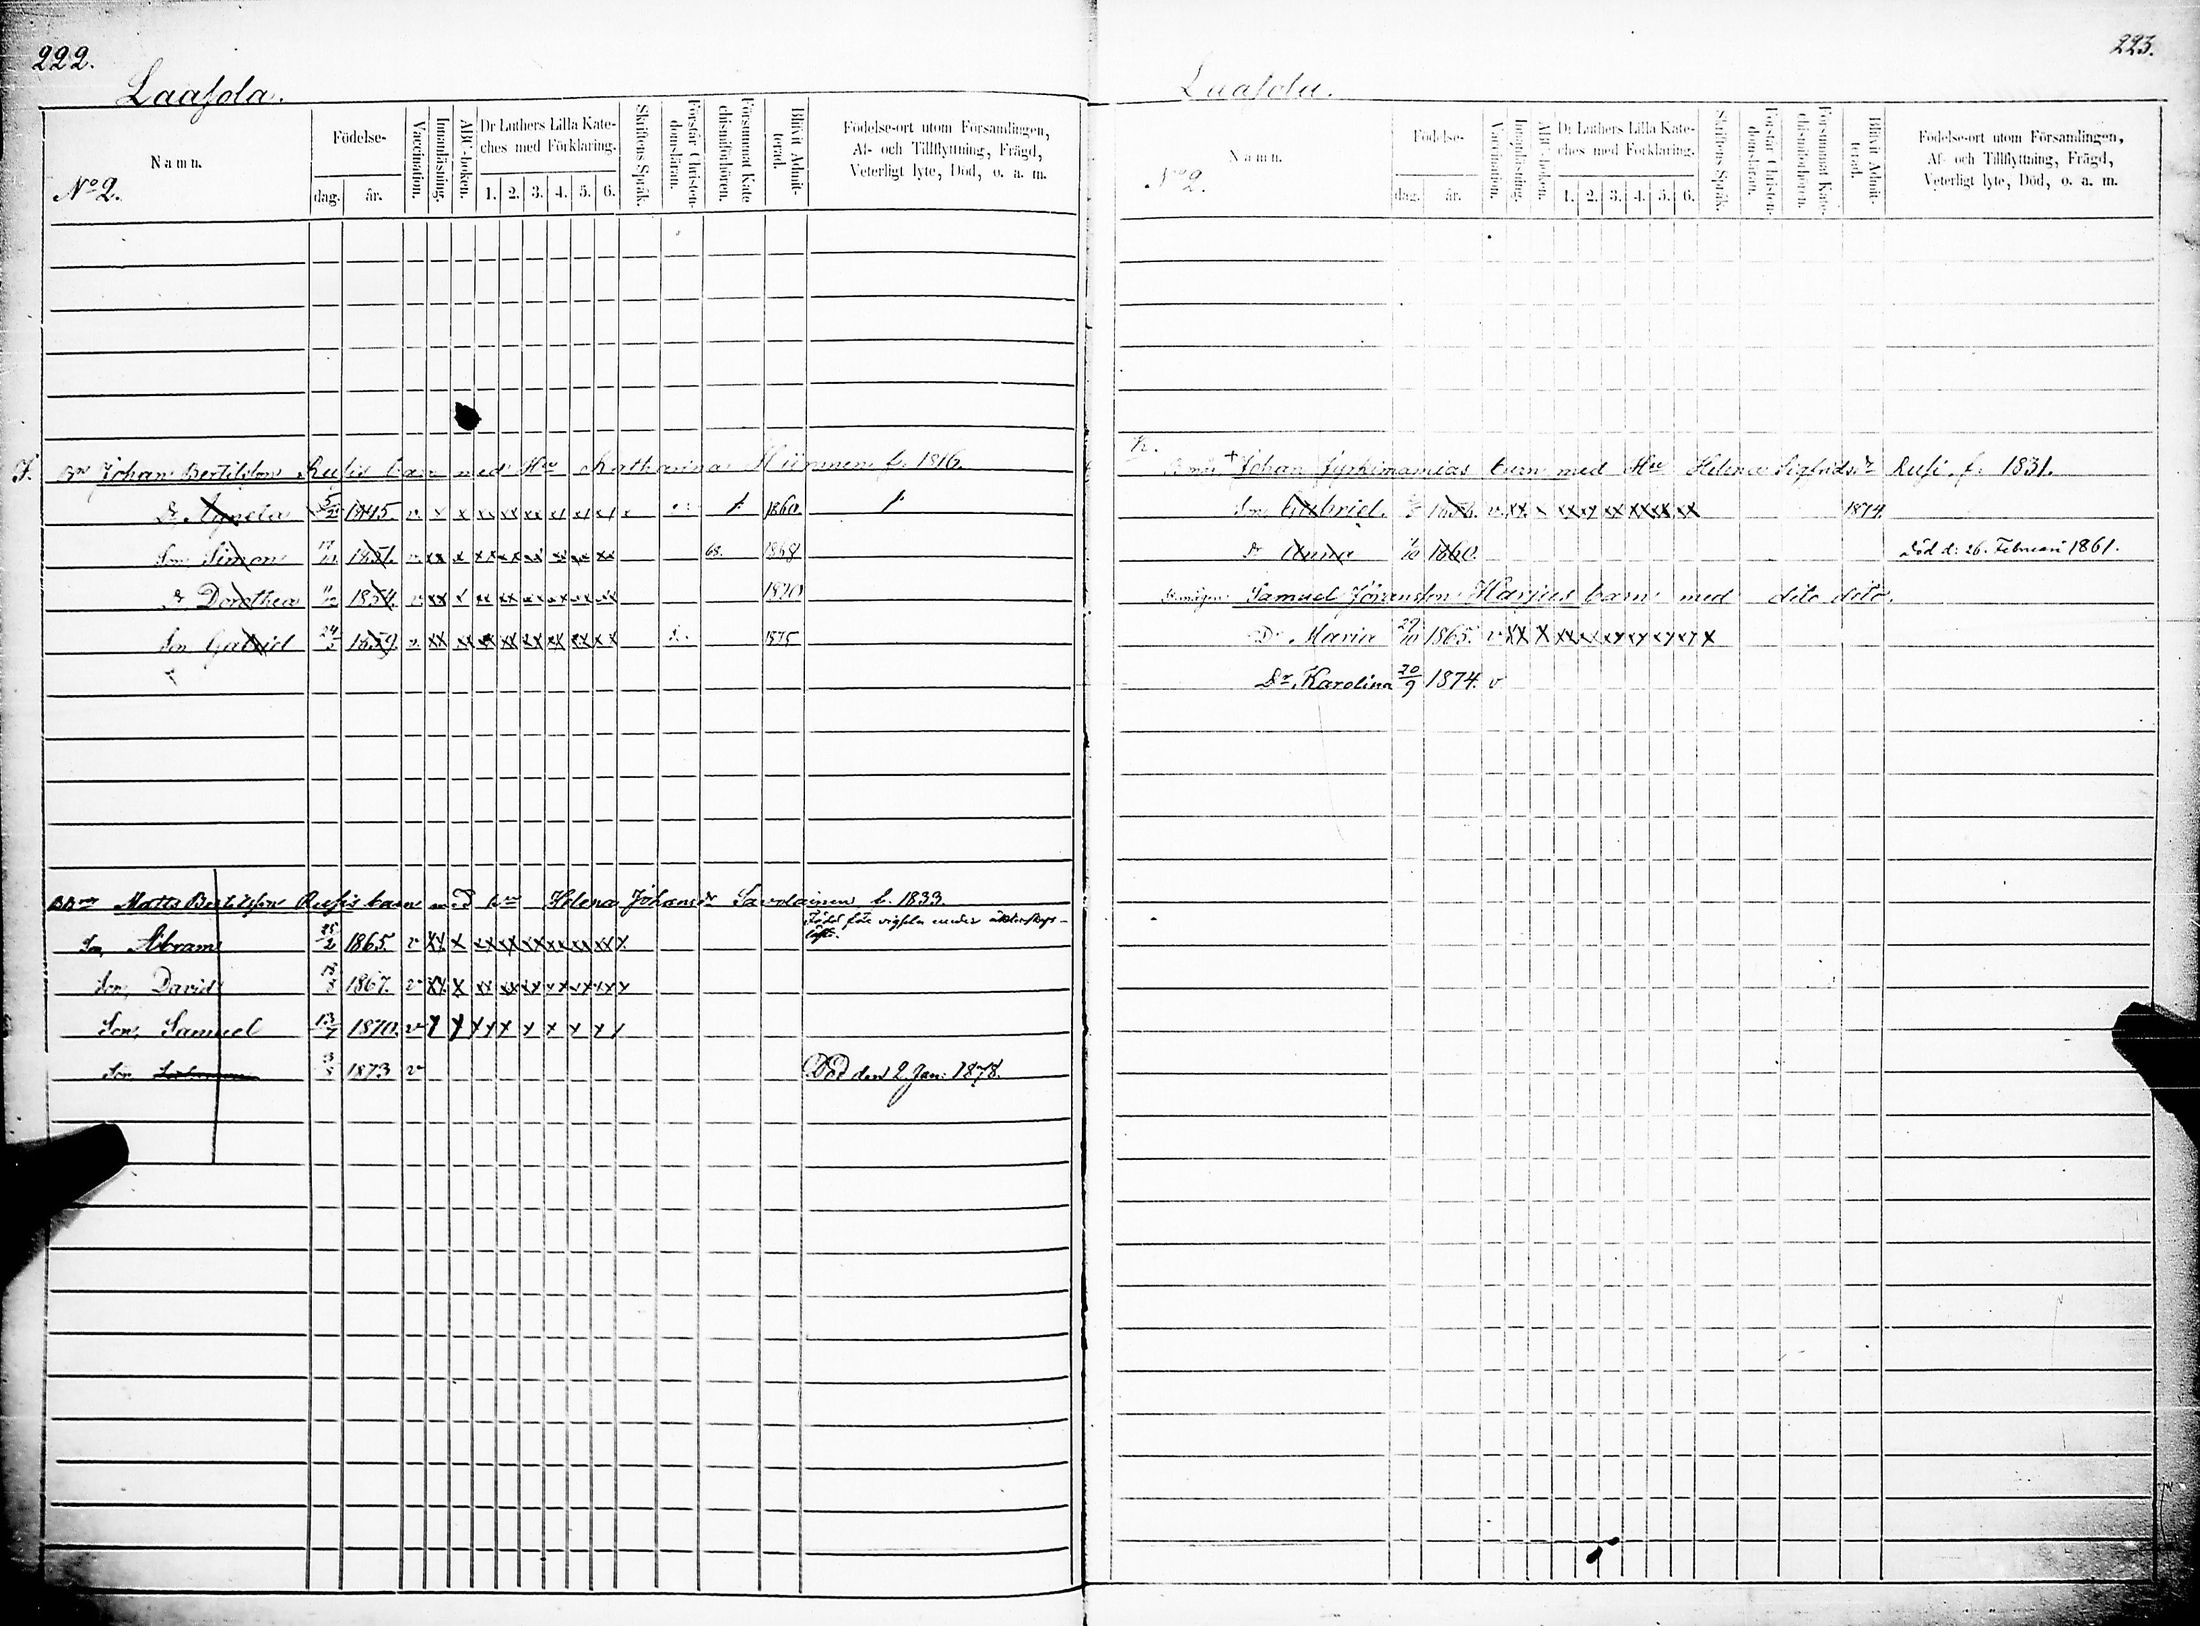 222.
Laasola.
Namn.
No 2.
Födelse-
dag. år.
Vaccination.
Innanläsning.
ABC-boken.
Dr Luthers Lilla Kate-
ches med Förklaring.
1. 2. 3. 4. 5. 6.
Skriftens Språk.
Förstår Christen-
domsläran.
Försummat Kate-
chismiförhören.
Blivit Admit-
terad.
Födelse-ort utom Församlingen,
Af- och Tillflyttning, Frägd,
Veterligt lyte, Död, o. a. m.
J. Bn Johan Bertilsson Rusis barn med Hu Katharina f. 1816.
Dr Agneta 5/2 1845. v x x xx xx xx xx xx xx x 1860.
Son Simon 1851. v xx x xx xx xx xx xx xx 68. 1868
Dr Dorothea 1854. v xx x xx xx xx xx xx xx 1870
Son Gabriel 24/5 1859. v. xx xx xx xx xx xx xx xx 1875
Matts Bertilsson Rusis barn med hu Helena Johansdr Savolainen f. 1833
Född före vigseln under äktenskaps-
löfte.
Son, Abram 25/2 1865. v xx x xx xx xx xx xx xx x
Son, David 18/8 1867. v xx x xx xx xx xx xx xx x
Son, Samuel 13/7 1870. v x x x x x x x x x
Son 1873 v Död den 2 Jan: 1878.
223.
Laasola.
Namn.
No 2.
Födelse-
dag. år.
Vaccination.
Innanläsning.
ABC-boken.
Dr Luthers Lilla Kate-
ches med Förklaring.
1. 2. 3. 4. 5. 6.
Skriftens Språk.
Förstår Christen-
domsläran.
Försummat Kate-
chismiförhören.
Blivit Admit-
terad.
Födelse-ort utom Församlingen,
Af- och Tillflyttning, Frägd,
Veterligt lyte, Död, o. a. m.
+ Johan barn med Hu Helena Sigfridsdr Rusi, f. 1831.
Son Gabriel. 1856. v xx. x xx xx xx xx xx xx 1874.
Dr Anna 1/10 1860. Död d: 26. Februari 1861.
Samuel Göransson Harjus barn med dito dito.
Dr Maria 29/10 1865. v xx x xx xx xx xx xx xx x
Dr. Karolina 20/9 1874. v